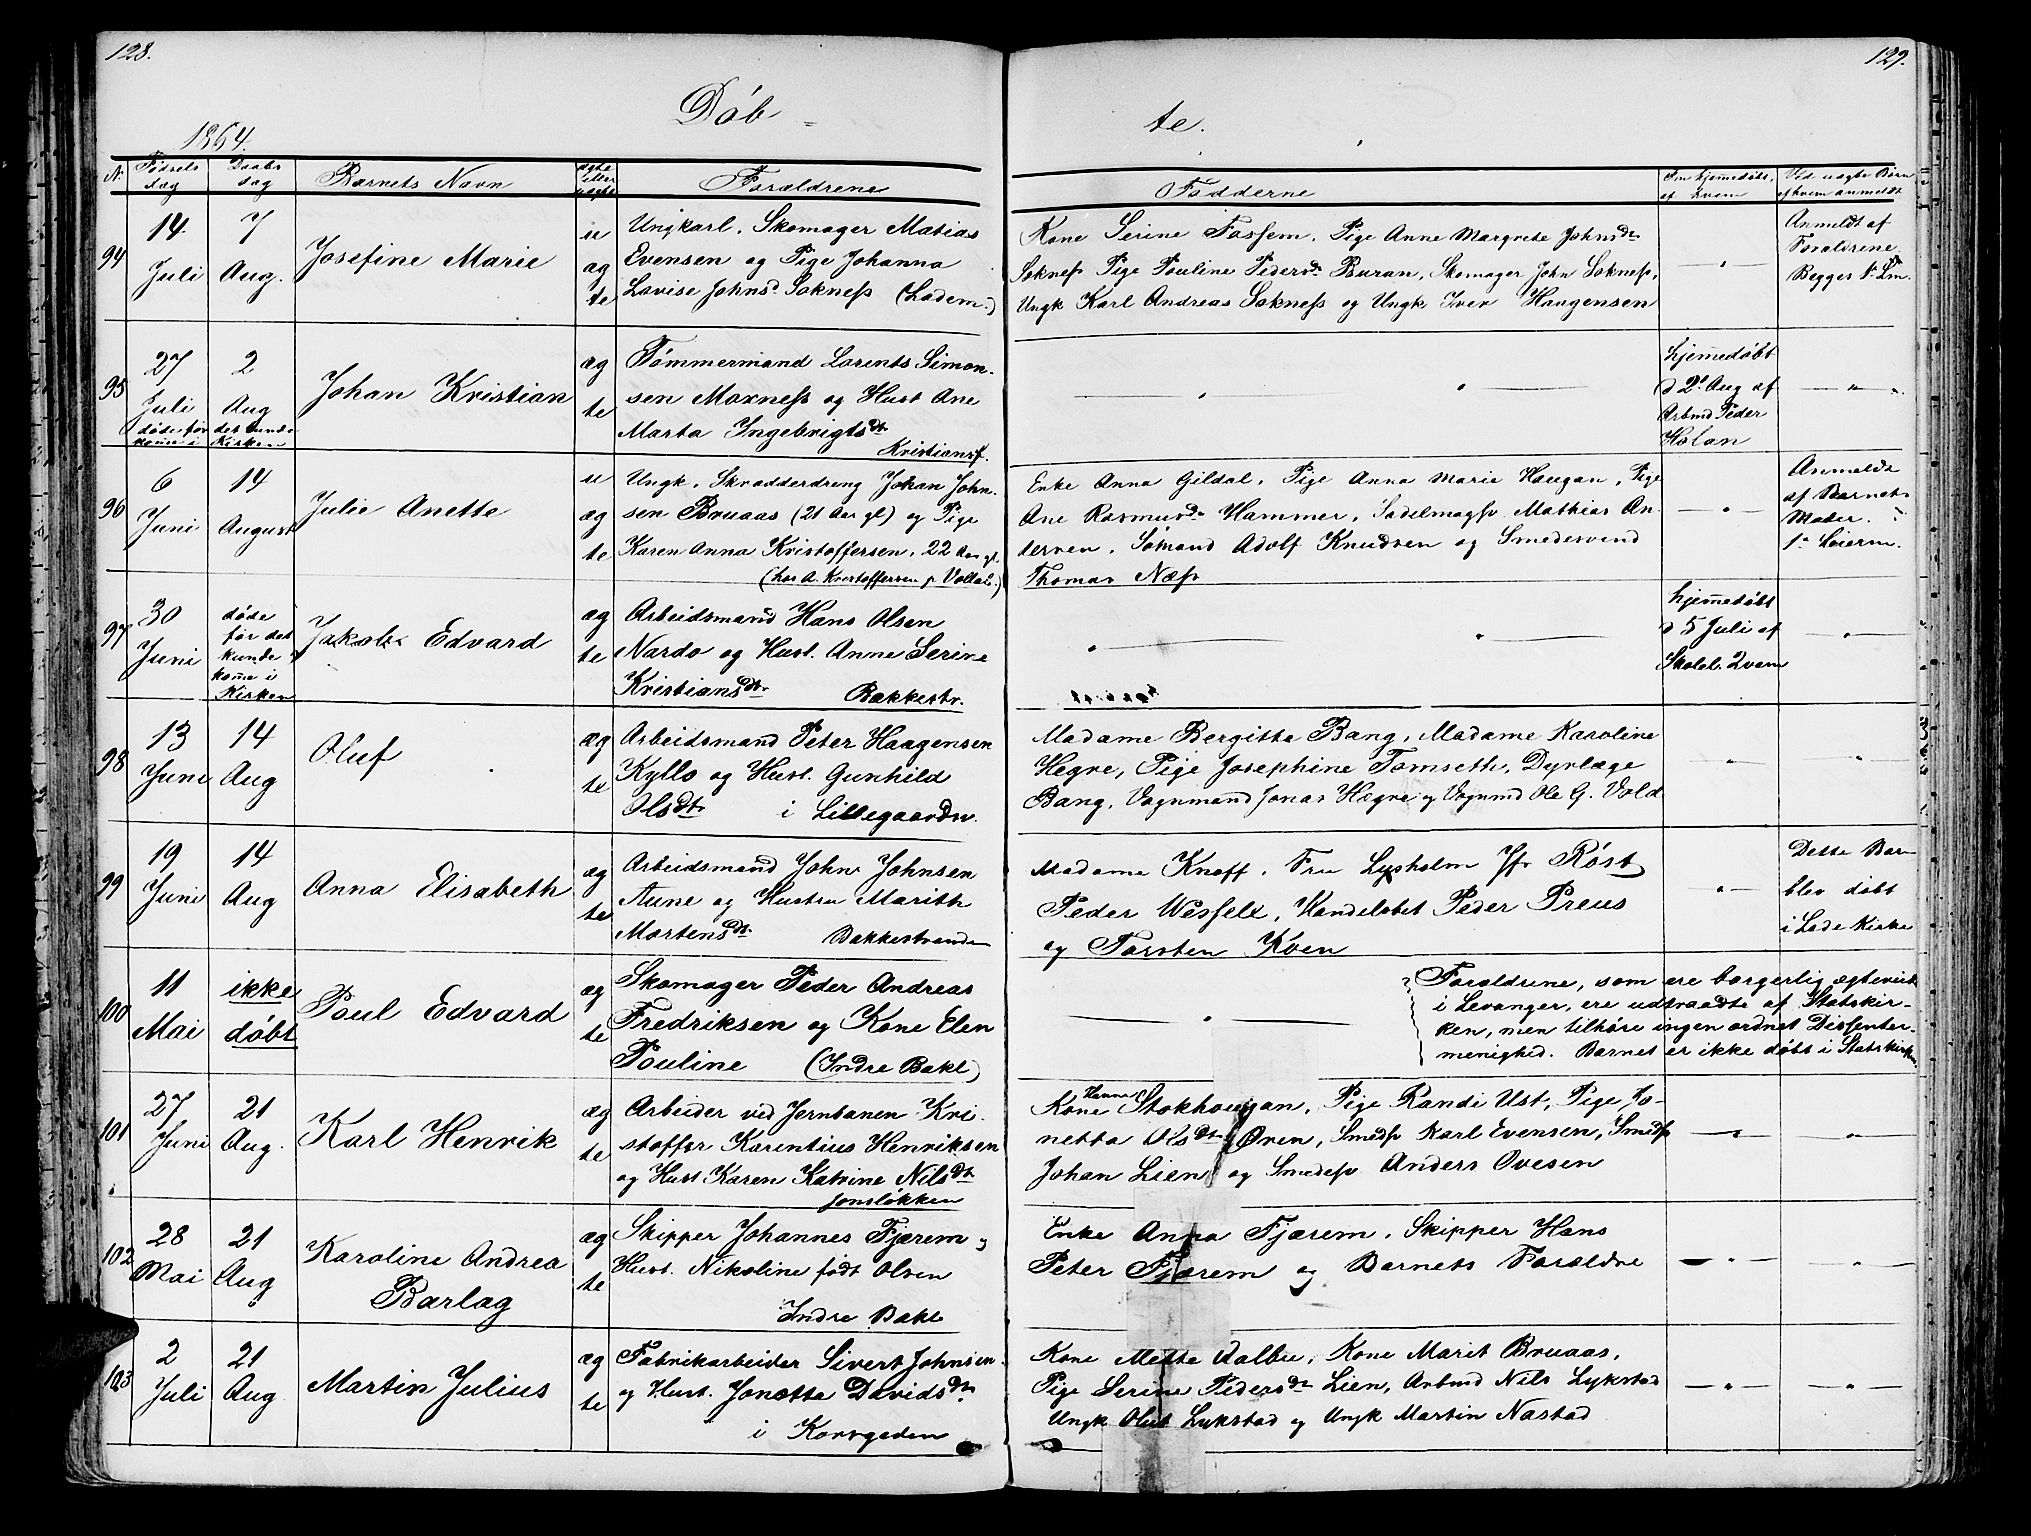 128.
129.
Döb - te.
1864.
N. Födsels dag Daabs dag Barnets Navn ægte eller uægte Forældrene Fadderne Om hjemedöbt, af hvem Ved uægte Børn af hvem anmeldt
94 14 Juli 7 Aug. Josefine Marie u æg te
Ungkarl, Skomager Matias
Evensen og Pige Johanna
Lovise Johnsd. Sokness (Ladem.)
Kone Serine Fossem, Pige Anne Margrete Johnsdt
Sokness Pige Pouline Pedersdt Buran, Skomager John Sokness,
Ungk Karl Andreas Sokness og Ungk Iver Haagensen
— " —
Anmeldt af
Forældrene
Begges 1ste Lm.
95 27 Juli 2 Aug Johan Kristian æg te
döde før det kunde
kome i Kirken
Tömmermand Lorents Simon-
sen Moxness og Hust Ane
Marta Ingebrigtsdt
Kristiansf.
— " — " —
hjemedöbt
d 2d Aug af
Arbmd Peder
Holan
— " —
96 6 Juni 14 August Julie Anette u æg te
Ungk. Skrædderdreng Johan John-
sen Bruaas (21 Aar gl) og Pige
Karen Anna Kristoffersen, 22 Aar gl.
(hos A. Kristoffersen p Vollab.)
Enke Anna Gildal, Pige Anna Marie Haugan, Pige
Ane Rasmusdt Hammer, Sadelmagsv Mathias An-
dersen, Sömand Adolf Knudsen og Smedesvend
Thomas Næss
— " —
Anmeldt
af Barnets
Moder.
1ste Leierm.
97 30 Juni Jakob Edvard æg te
döde
før det
kunde
kome i
Kirken
Arbeidsmand Hans Olsen
Nardo og Hust. Anne Serine
Kristiansdtr. Bakkestr.
" — " —
hjemedöbt
d 5 Juli af
Skolel. Qvam
— " —
98 13 Juni 14 Aug Oluf æg te
Arbeidsmand Peter Haagensen
Kyllo og Hust. Gunhild
Olsdtr i Lillegaardn.
Madame Bergitte Bang, Madame Karoline
Hegre, Pige Josephine Tomseth, Dyrlæge
Bang, Vognmand Jonas Hegre og Vognmd Ole G. Vold
— " — — " —
99 19 Juni 14 Aug Anna Elisabeth æg te
Arbeidsmand John Johnsen
Aune og Hustru Marith
Mortensdt. Bakkestranden
Madame Knoff, Fru Lysholm Jfr Röst
Peder Wessel, Handelsbet Peder Preus
og Torsten Koen
— " —
Dette Barn
blev döbt
i Lade Kirke
100 11 Mai ikke döbt Poul Edvard æg te
Skomager Peder Andreas
Fredriksen og Kone Elen
Pouline (Indre Bakl)
— " —
Forældrene, som ere borgerlig ægteviet
i Levanger, ere udtraadte af Statskir-
ken, men tilhöre ingen ordnet Dissenter-
menighed. Barnet er ikke döbt i Statskirken
101 27 Juni 21 Aug. Karl Henrik æg te
Arbeider ved Jernbanen Kri-
stoffer Karentius Henriksen
og Hust Karen Katrine Nilsdt
Jonsløkken
Kone Hanna Stokhaugan, Pige Randi Ust, Pige Jo-
netta Olsdt Øren, Smedsv Karl Evensen, Smedsv
Johan Lien og Smedesv Anders Ovesen
— " — — " —
102 28 Mai 21 Aug Karoline Andrea Barlag æg te
Skipper Johannes Fjærem og
Hust. Nikoline født Olsen
Indre Bakl
Enke Anna Fjærem, Skipper Hans
Peter Fjærem og Barnets Forældre
— " — — " —
103 2 Juli 21 Aug Martin Julius æg te
Fabrikarbeider Sivert Johnsen
og Hust. Jonetta Davidsdtr
i Korsgaden
Kone Mette Aalbu, Kone Marit Bruaas,
Pige Serine Pedersdtr Lien, Arbmd Nils Lykstad
Ungk Oluf Lykstad og Ungk Martin Nastad
— " — — " —